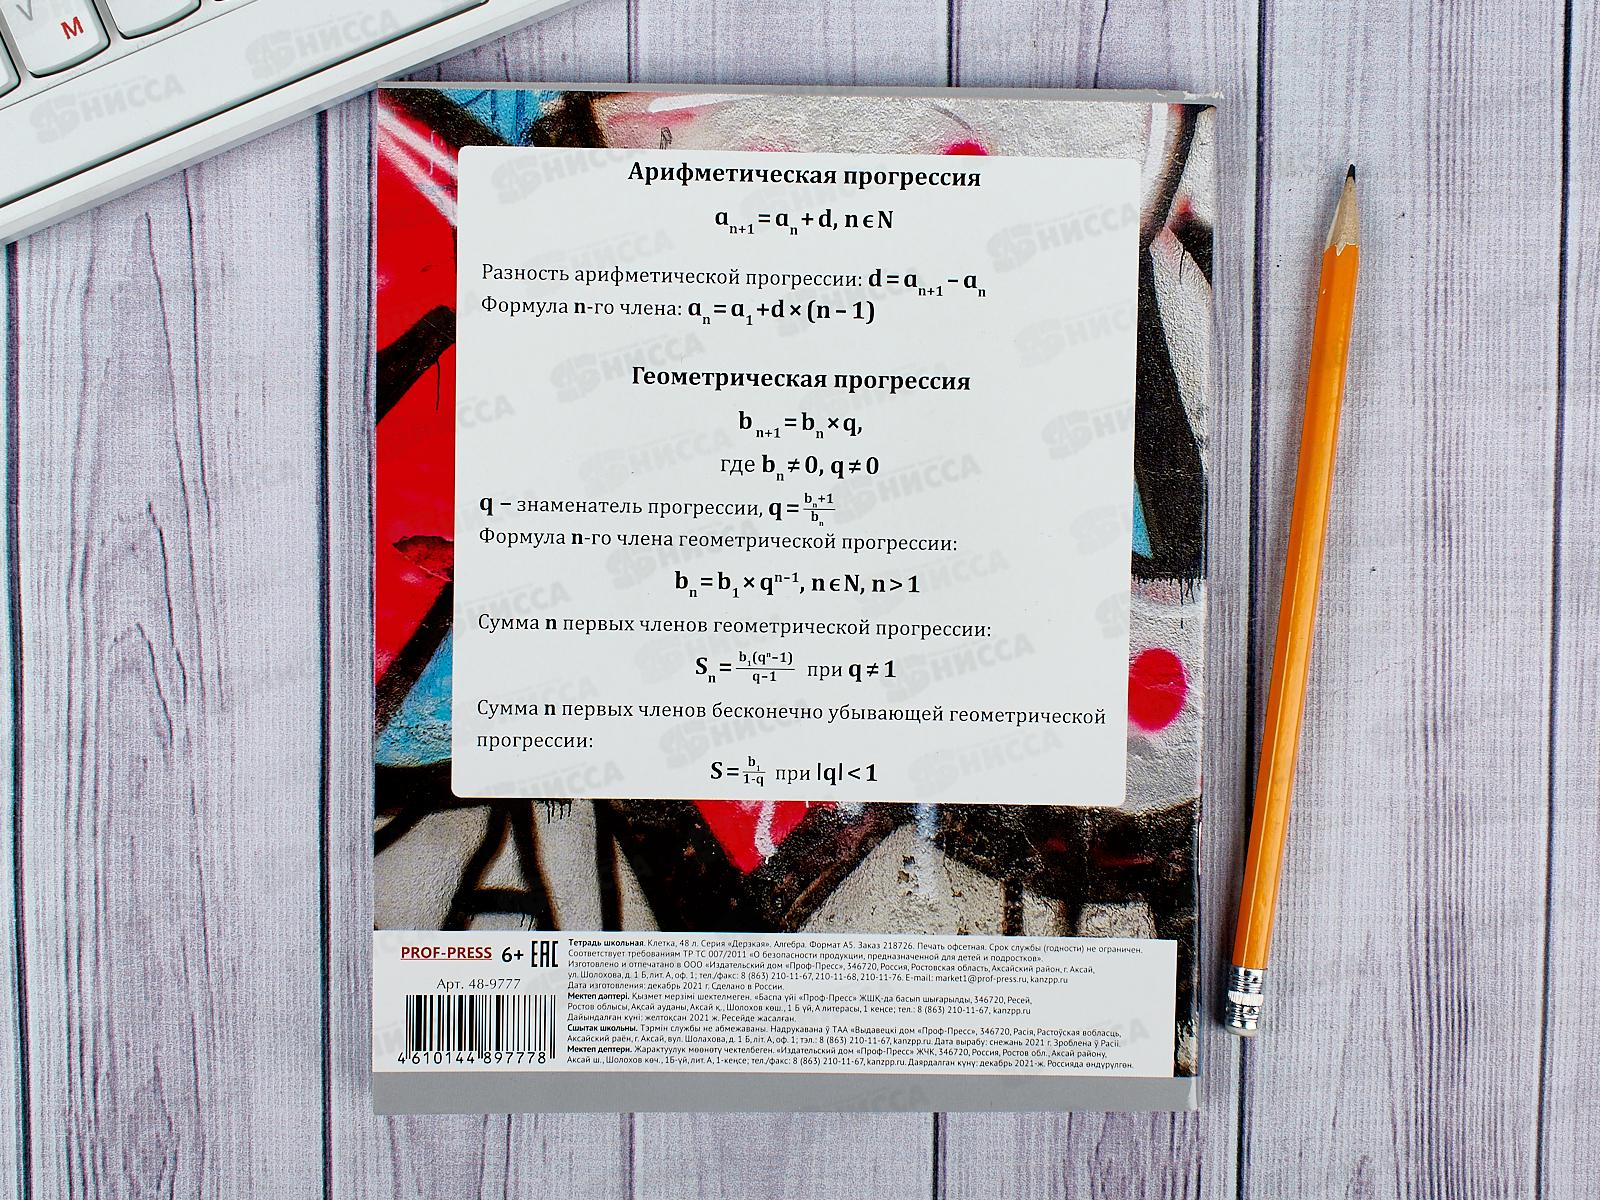 М
Арифметическая прогрессия
a n+1 = a n + d, n ϵ N
Разность арифметической прогрессии: d = a n+1 – a n
Формула n-го члена: a n = a 1 + d × (n – 1)
Геометрическая прогрессия
b n+1 = b n × q,
где b n ≠ 0, q ≠ 0
q – знаменатель прогрессии, q = b n +1 / b n
Формула n-го члена геометрической прогрессии:
b n = b 1 × q^n–1, n ϵ N, n > 1
Сумма n первых членов геометрической прогрессии:
S n = b 1 (q^n–1) / q–1 при q ≠ 1
Сумма n первых членов бесконечно убывающей геометрической
прогрессии:
S = b 1 / 1-q при |q| < 1
PROF-PRESS 6+ EAC
Арт. 48-9777
4 610144 897778
Тетрадь школьная. Клетка, 48 л. Серия «Дерзкая». Алгебра. Формат А5. Заказ 218726. Печать офсетная. Срок службы (годности) не ограничен.
Соответствует требованиям ТР ТС 007/2011 «О безопасности продукции, предназначенной для детей и подростков».
Изготовлено и отпечатано в ООО «Издательский дом «Проф-Пресс», 346720, Россия, Ростовская область, Аксайский район, г. Аксай,
ул. Шолохова, д. 1 Б, лит. А, оф. 1; тел./факс: 8 (863) 210-11-67, 210-11-68, 210-11-76. E-mail: market1@prof-press.ru, kanzpp.ru
Дата изготовления: декабрь 2021 г. Сделано в России.
Мектеп дәптері. Қызмет мерзімі шектелмеген. «Баспа үйі «Проф-Пресс» ЖШҚ-да басып шығарылды, 346720, Ресей,
Ростов облысы, Ақсай ауданы, Аксай қ., Шолохов көш., 1 Б үй, А литерасы, 1 кеңсе; тел.: 8 (863) 210-11-67, kanzpp.ru
Дайындалған күні: желтоқсан 2021 ж. Ресейде жасалған.
Сшытак школьны. Тэрмін службы не абмежаваны. Надрукавана ў ТАА «Выдавецкі дом «Проф-Пресс», 346720, Расія, Растоўская вобласць,
Аксайскі раён, г. Аксай, вул. Шолахава, д. 1 Б, літ. А, оф. 1; тэл.: 8 (863) 210-11-67, kanzpp.ru. Дата вырабу: снежань 2021 г. Зроблена ў Расіі.
Мектеп дептери. Жарактуулук мөөнөтү чектелбеген. «Издательский дом «Проф-Пресс» ЖЧК, 346720, Россия, Ростов обл., Аксай району,
Аксай ш., Шолохов көч., 1Б-үй, лит. А, 1-кеңсе; тел./факс: 8 (863) 210-11-67, kanzpp.ru. Даярдалган күнү: декабрь 2021-ж. Россияда өндүрүлгөн.
НИССА